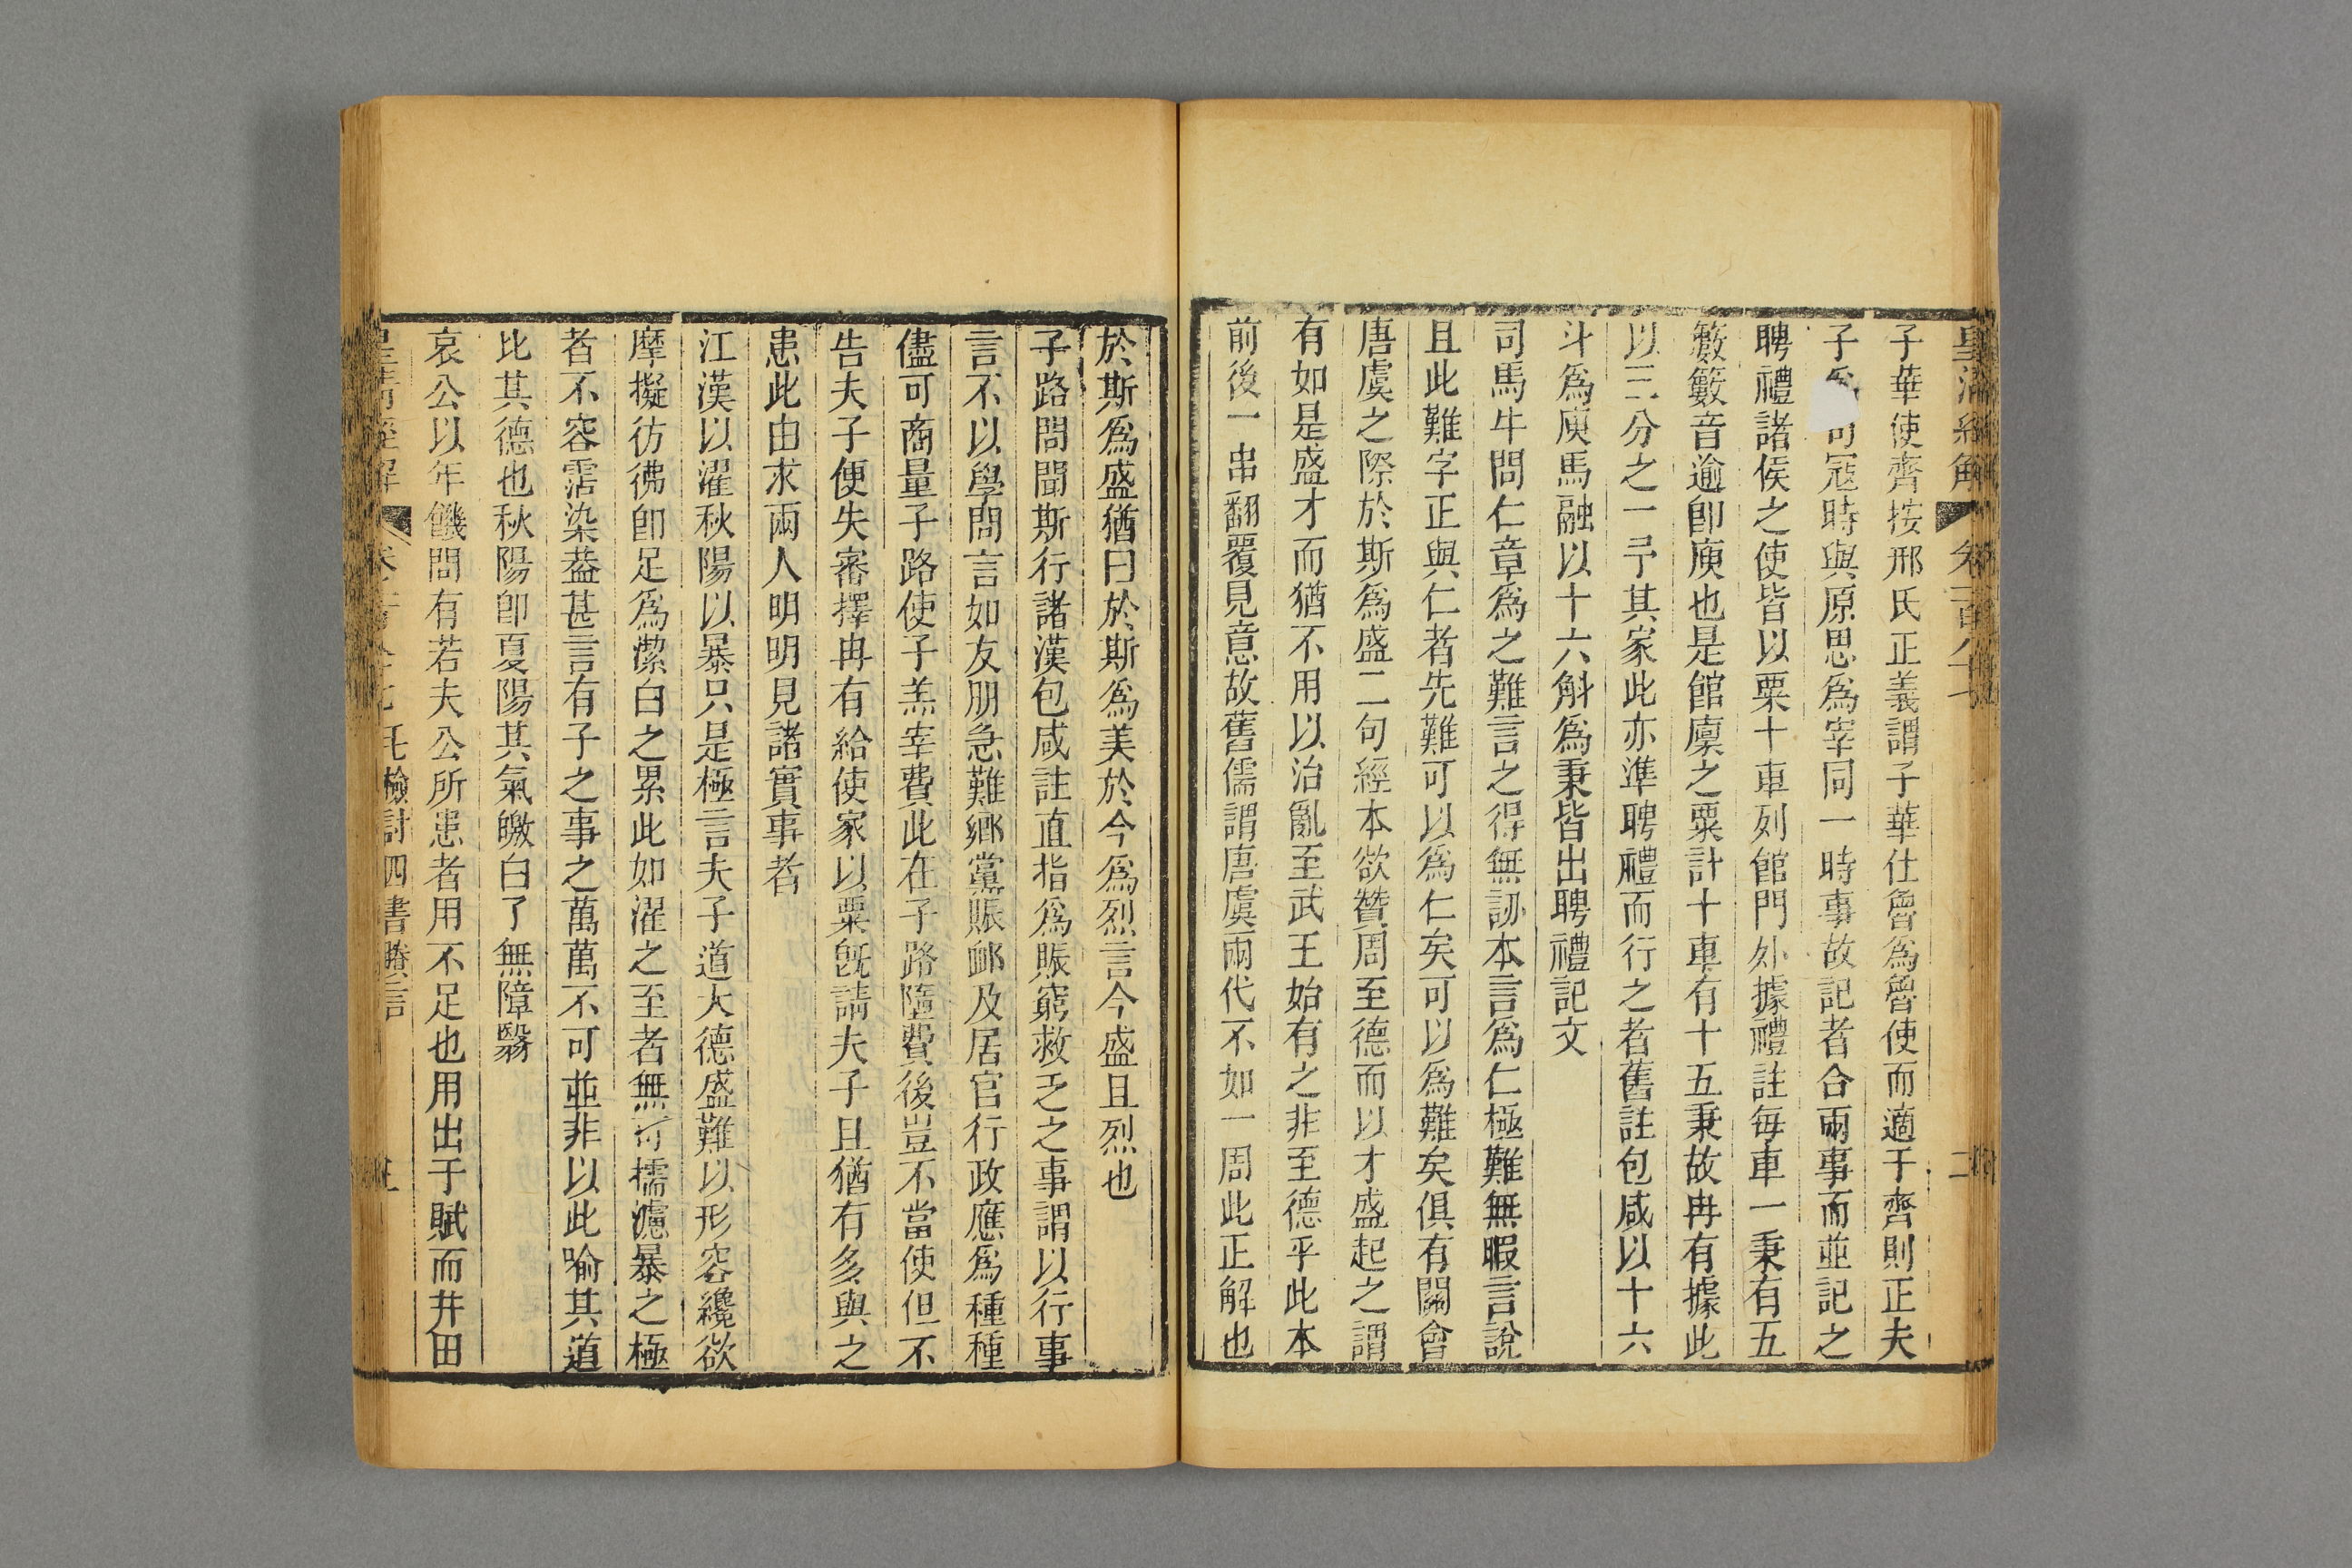 子華使齊按邢氏正義謂子華仕魯爲魯使而適于齊則正夫
子司寇時與原思爲宰同一時事故記者合兩事而並記之
聘禮諸侯之使皆以粟十車列館門外據禮註每車一秉有五
籔籔音逾卽庾也是館廩之粟計十車有十五秉故冉有據此
以三分之一予其家此亦準聘禮而行之者舊註包咸以十六
斗爲庾馬融以十六斛爲秉皆出聘禮記文
司馬牛問仁章爲之難言之得無訒本言爲仁極難無暇言說
且此難字正與仁者先難可以爲仁矣可以爲難矣俱有關會
唐虞之際於斯爲盛二句經本欲贊周至德而以才盛起之謂
有如是盛才而猶不用以治亂至武王始有之非至德乎此本
前後一串翻覆見意故舊儒謂唐虞兩代不如一周此正解也
於斯爲盛猶曰於斯爲美於今爲烈言今盛且烈也
子路問聞斯行諸漢包咸註直指爲賑窮救乏之事謂以行事
言不以學問言如友朋急難鄉黨賑䘏及居官行政應爲種種
儘可商量子路使子羔宰費此在子路隳費後豈不當使但不
告夫子便失審擇冉有給使家以粟旣請夫子且猶有多與之
患此由求兩人明明見諸實事者
江漢以濯秋陽以暴只是極言夫子道大德盛難以形容纔欲
摩擬彷彿卽足爲潔白之累此如濯之至者無可擩濾暴之極
者不容霑染葢甚言有子之事之萬萬不可並非以此喻其道
比其德也秋陽卽夏陽其氣皦白了無障翳
哀公以年饑問有若夫公所患者用不足也用出于賦而井田
皇清經解
毛檢討四書賸言